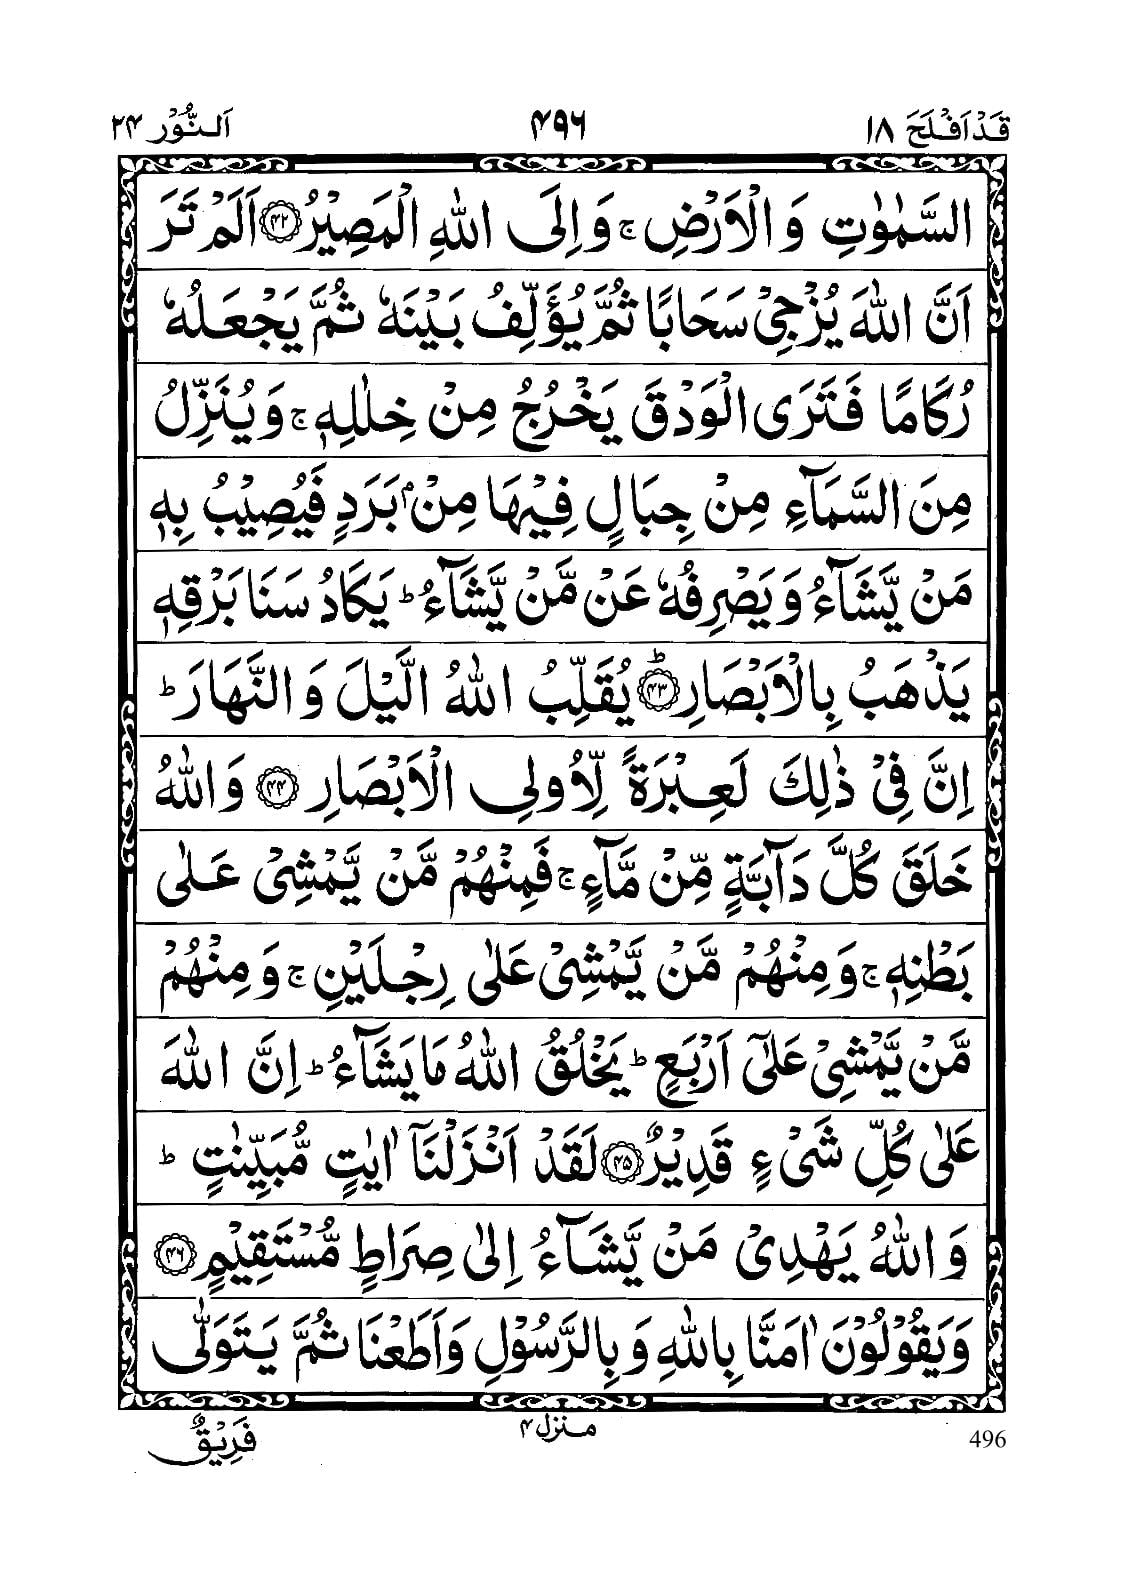 قَدْ اَفْلَحَ ۱۸ ۴۹۶ اَلنُّوْر ۲۴
السَّمٰوٰتِ وَ الْاَرْضِ ۚ وَ اِلَى اللّٰهِ الْمَصِيْرُ ۝۴۲ اَلَمْ تَرَ
اَنَّ اللّٰهَ يُزْجِيْ سَحَابًا ثُمَّ يُؤَلِّفُ بَيْنَهٗ ثُمَّ يَجْعَلُهٗ
رُكَامًا فَتَرَى الْوَدْقَ يَخْرُجُ مِنْ خِلٰلِهٖ ۚ وَ يُنَزِّلُ
مِنَ السَّمَآءِ مِنْ جِبَالٍ فِيْهَا مِنْۢ بَرَدٍ فَيُصِيْبُ بِهٖ
مَنْ يَّشَآءُ وَ يَصْرِفُهٗ عَنْ مَّنْ يَّشَآءُ ؕ يَكَادُ سَنَا بَرْقِهٖ
يَذْهَبُ بِالْاَبْصَارِ ؕ۝۴۳ يُقَلِّبُ اللّٰهُ الَّيْلَ وَ النَّهَارَ ؕ
اِنَّ فِيْ ذٰلِكَ لَعِبْرَةً لِّاُولِي الْاَبْصَارِ ۝۴۴ وَ اللّٰهُ
خَلَقَ كُلَّ دَآبَّةٍ مِّنْ مَّآءٍ ۚ فَمِنْهُمْ مَّنْ يَّمْشِيْ عَلٰى
بَطْنِهٖ ۚ وَ مِنْهُمْ مَّنْ يَّمْشِيْ عَلٰى رِجْلَيْنِ ۚ وَ مِنْهُمْ
مَّنْ يَّمْشِيْ عَلٰۤى اَرْبَعٍ ؕ يَخْلُقُ اللّٰهُ مَا يَشَآءُ ؕ اِنَّ اللّٰهَ
عَلٰى كُلِّ شَيْءٍ قَدِيْرٌ ۝۴۵ لَقَدْ اَنْزَلْنَاۤ اٰيٰتٍ مُّبَيِّنٰتٍ ؕ
وَ اللّٰهُ يَهْدِيْ مَنْ يَّشَآءُ اِلٰى صِرَاطٍ مُّسْتَقِيْمٍ ۝۴۶
وَ يَقُوْلُوْنَ اٰمَنَّا بِاللّٰهِ وَ بِالرَّسُوْلِ وَ اَطَعْنَا ثُمَّ يَتَوَلّٰى
496 منزل ۴ فَرِيْقٌ